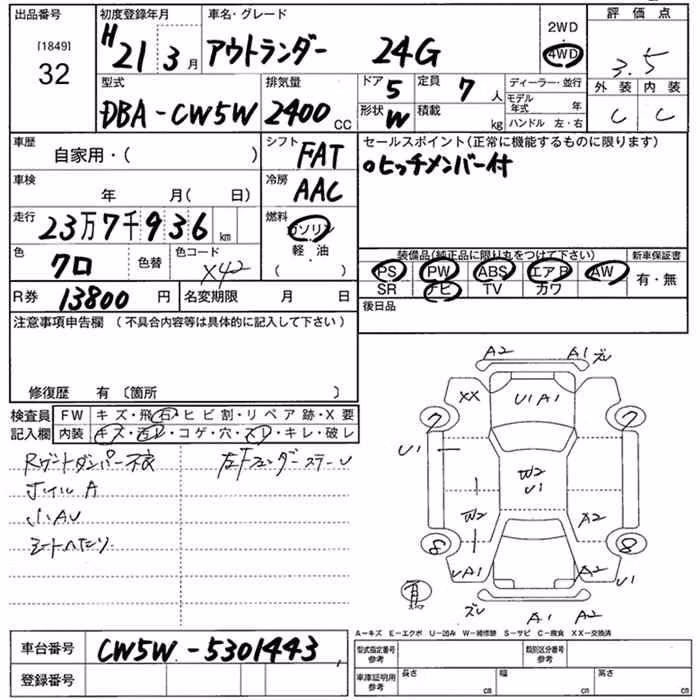 出品番号 初度登録年月 車名・グレード 2WD 評価点
[1849] 32 H21 3月 アウトランダー 24G 4WD 3.5
型式 排気量 ドア 5 定員 7人 ディーラー・並行 外装 内装
DBA-CW5W 2400CC 形状 W 積載 kg モデル年式 年 C C
ハンドル 左・右
車歴 シフト セールスポイント(正常に機能するものに限ります)
自家用・( ) FAT oヒッチメンバー付
車検 冷房
年 月( 日) AAC
走行 燃料
23万7千936km ガソリン
軽・油
( )
色 色替 色コード 装備品(純正品に限り丸をつけて下さい) 新車保証書
クロ X42 PS PW ABS エアB AW 有・無
SR ナビ TV カワ
R券 13800円 名変期限 月 日 後日品
注意事項申告欄 (不具合内容等は具体的に記入して下さい)
修復歴 有 〔箇所 〕
検査員 FW キズ・飛石・ヒビ割・リペア跡・X要
記入欄 内装 キズ・汚レ・コゲ・穴・スレ・キレ・破レ
Rゲートダンパー不良 左Fフェンダーステー U
ホイル A
小AU
シートヘたり
A2 A1 ズレ
XX U1 A1
7 7
U1
W2
U1
W2 A2
8 8
UA1 A2 U1
ズレ A1 A2
A-キズ E-エクボ U-凹み W-補修跡 S-サビ C-腐食 XX-交換済
車台番号 CW5W-5301443
登録番号
型式指定番号 参考 類別区分番号 参考
車庫証明用 参考 長さ cm 幅 cm 高さ cm